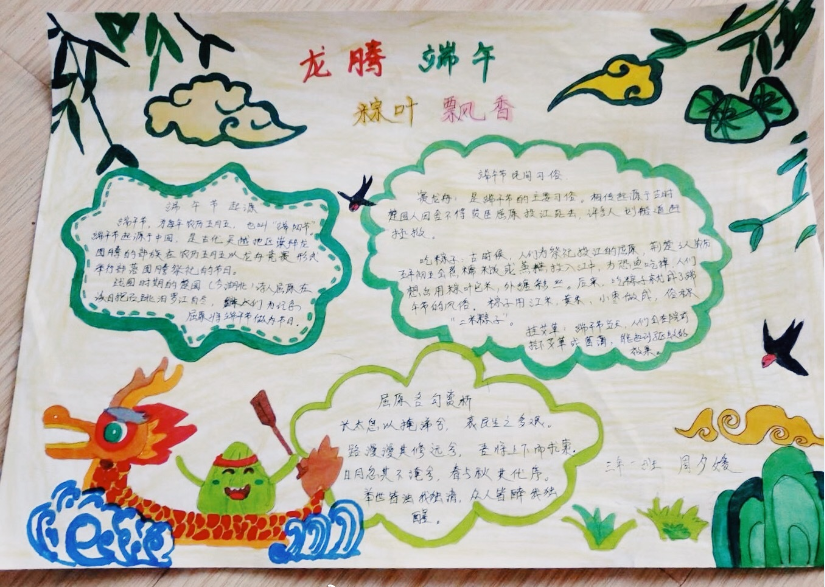 龙腾 端午
粽叶 飘香
端午节起源
端午节，为每年农历五月五，也叫“端阳节”
端午节起源于中国，是古代吴越地区崇拜龙
图腾的部族在农历五月五以龙舟竞赛形式
举行部落图腾祭祀的节日。
战国时期的楚国（今湖北）诗人屈原在
该日抱石跳汨罗江自尽，我们为纪念
屈原将端午节做为节日。
端午节民间习俗
赛龙舟：是端午节的主要习俗。相传起源于古时
楚国人因舍不得贤臣屈原投江死去，许多人划船追赶
拯救。
吃粽子：古时候，人们为祭祀投江的屈原，
想出用粽叶包米，外缠彩丝。后来，吃粽子
午节的风俗。粽子用江米、黄米、小枣做成，俗称
“江米粽子”。
挂艾草：端午节这天，人们
效果。
屈原名句赏析
长太息以掩涕兮，哀民生之多艰。
路漫漫其修远兮，吾将上下而求索。
日月忽其不淹兮，春与秋其代序。
举世皆浊我独清，众人皆醉我独
醒。
三年一班 周夕焕